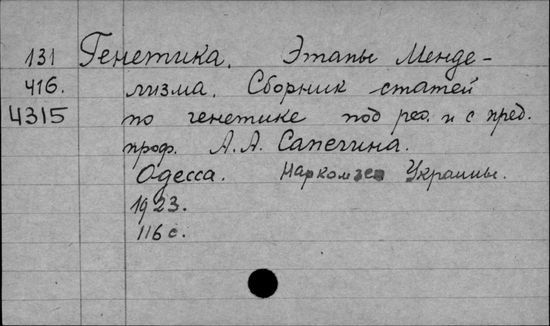 131 Генетика. Этапы Менде-
416. лизма. Сборник статей
4315 по генетике под ред. и с пред.
проф. А. А. Сапегина.
Одесса. Наркомзем Украины.
1923.
116 с.